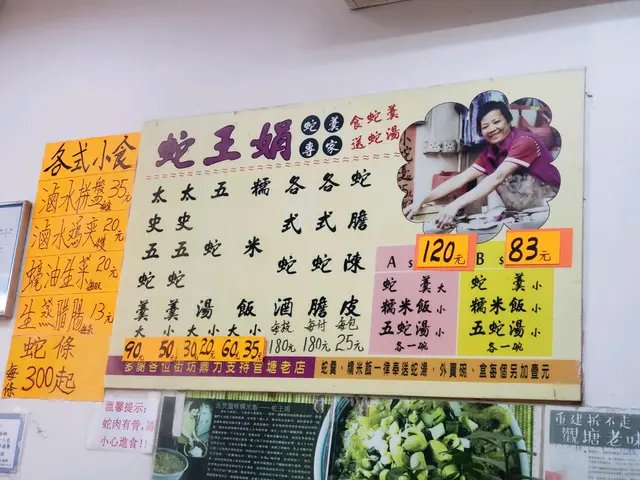 各式小食
滷水拼盤35元
滷水鷄夾20元
蠔油韮菜20元
生蒸腊腸13元
蛇條
每條300起
蛇王娟
蛇羹專家
食蛇羹
送蛇湯
太史五蛇羹大90元
太史五蛇羹小50元
五蛇湯大30小20元
糯米飯大60小35元
各式蛇酒每枝180元
各式蛇膽每付180元
蛇膽陳皮每包25元
A $120元
蛇羹大
糯米飯小
五蛇湯小
各一碗
B $83元
蛇羹小
糯米飯小
五蛇湯小
各一碗
多謝各位街坊鼎力支持官塘老店
蛇羹、糯米飯一律奉送蛇湯，外賣碗、盒每個另加壹元
溫馨提示：
蛇肉有骨，請
小心進食！
重建拆不走
觀塘老味